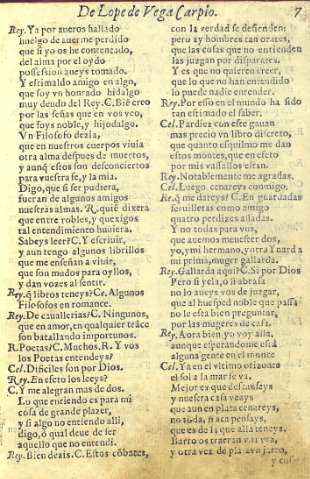 De Lope de Vega Carpio. 7
Rey. Ya por aueros hallado
huelgo de auerme perdido
que si yo os he contentado,
del alma por el oydo
possession aueys tomado.
Y estimaldo amigo en algo,
que soy vn honrado hidalgo
muy deudo del Rey. C. Biē creo
por las señas que en vos veo,
que soys noble, y hijodalgo.
Vn Filosofo dezia,
que en nuestros cuerpos viuia
otra alma despues de muertos,
y aunq̃ essos son desconciertos
para vuestra fe, y la mia.
Digo, que si ser pudiera,
fueran de algunos amigos
nuestras almas. R. quiē dixera
que entre robles, y quexigos
tal entendimiento huuiera.
Sabeys leer? C. Y escriuir,
y aun tengo algunos librillos
que me enseñan a viuir,
que son mudos para oyllos,
y dan vozes al sentir.
Rey. q̃ libros teneys? Ce. Algunos
Filosofos en romance.
Rey. De cauallerias? C. Ningunos,
que en amor, en qualquier trãce
son batallando importunos.
R. Poetas? C. Muchos. R. Y vos
los Poetas entendeys?
Cel. Dificiles son por Dios.
Rey. En efeto los leeys?
C. Y me alegran mas de dos.
Lo que entiendo es para mi
cosa de grande plazer,
y si algo no entiendo alli,
digo, ò qual deue de ser
aquello que no entendi.
Rey. Bien dezis. C. Estos cõbates,
con la verdad se defienden:
pero ay hombres tan orates,
que las cosas que no entienden
las juzgan por disparates.
Y es que no quieren creer,
que lo que no han entendido
lo puede nadie entender.
Rey. Por esso en el mundo ha sido
tan estimado el saber.
Cel. Pardiez con este gauan
mas precio vn libro discreto,
que quanto esquilmo me dan
estos montes, que en efeto
por mis vassallos estan.
Rey. Notablemente me agradas.
Cel. Luego cenareys conmigo.
Re. q̃ me dareys? C. En guardadas
seruilletas como amigo
quatro perdizes assadas.
Y no todas para vos,
que auemos menester dos,
yo, y mi hermano, y otra Ynarda
mi prima, muger gallarda.
Rey. Gallarda aqui? C. Si por Dios
Pero si yela, si abrasa
no lo aueys vos de juzgar,
que al huesped noble que passa
no le està bien preguntar,
por las mugeres de casa.
Rey. Aora bien yo voy alla,
aunque esperandome està
alguna gente en el monte
Cel. Ya en el vltimo orizonte
el sol a la mar se va.
Mejor es que descanseys
y nuestra casa veays
que aun en plata cenareys,
que es de la que alla teneys,
Barros os traeran vna vez,
y otra vez de plata vn jarro,
y cu-